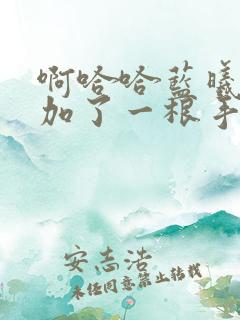 啊哈哈蓝曦
加了一根手
安志浩
未经同意禁止转载